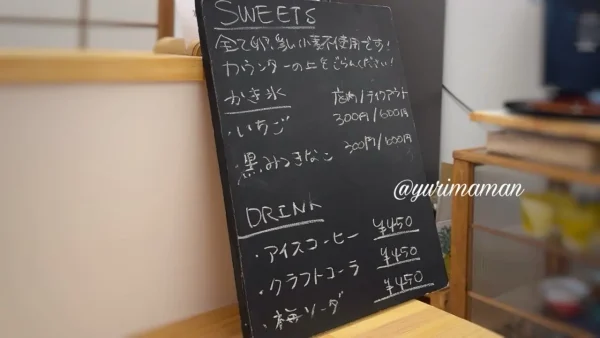 SWEETS
全て卵、乳、小麦不使用です!
カウンターの上をごらんください!
かき氷 店内/テイクアウト
・いちご 300円/600円
・黒みつきなこ 300円/600円
@yurimaman
DRINK
・アイスコーヒー ¥450
・クラフトコーラ ¥450
・梅ソーダ ¥450